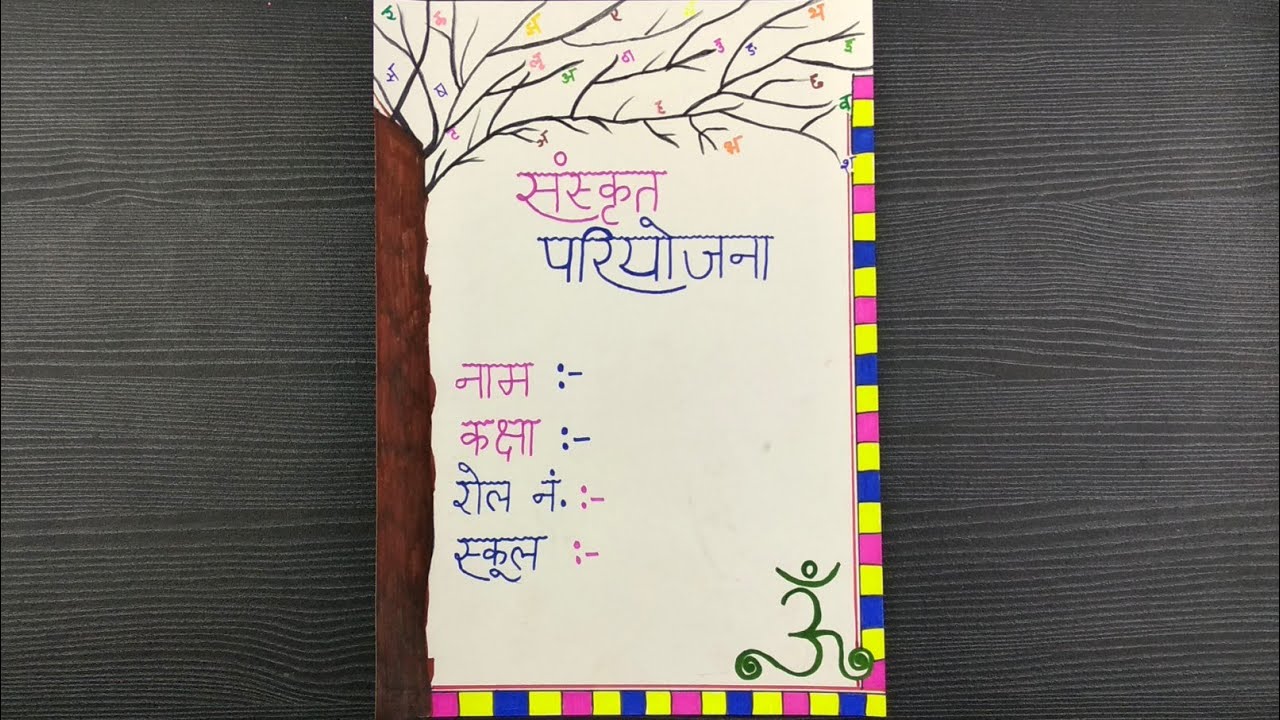 संस्कृत
परियोजना
नाम :-
कक्षा :-
रोल नं. :-
स्कूल :-
ॐ